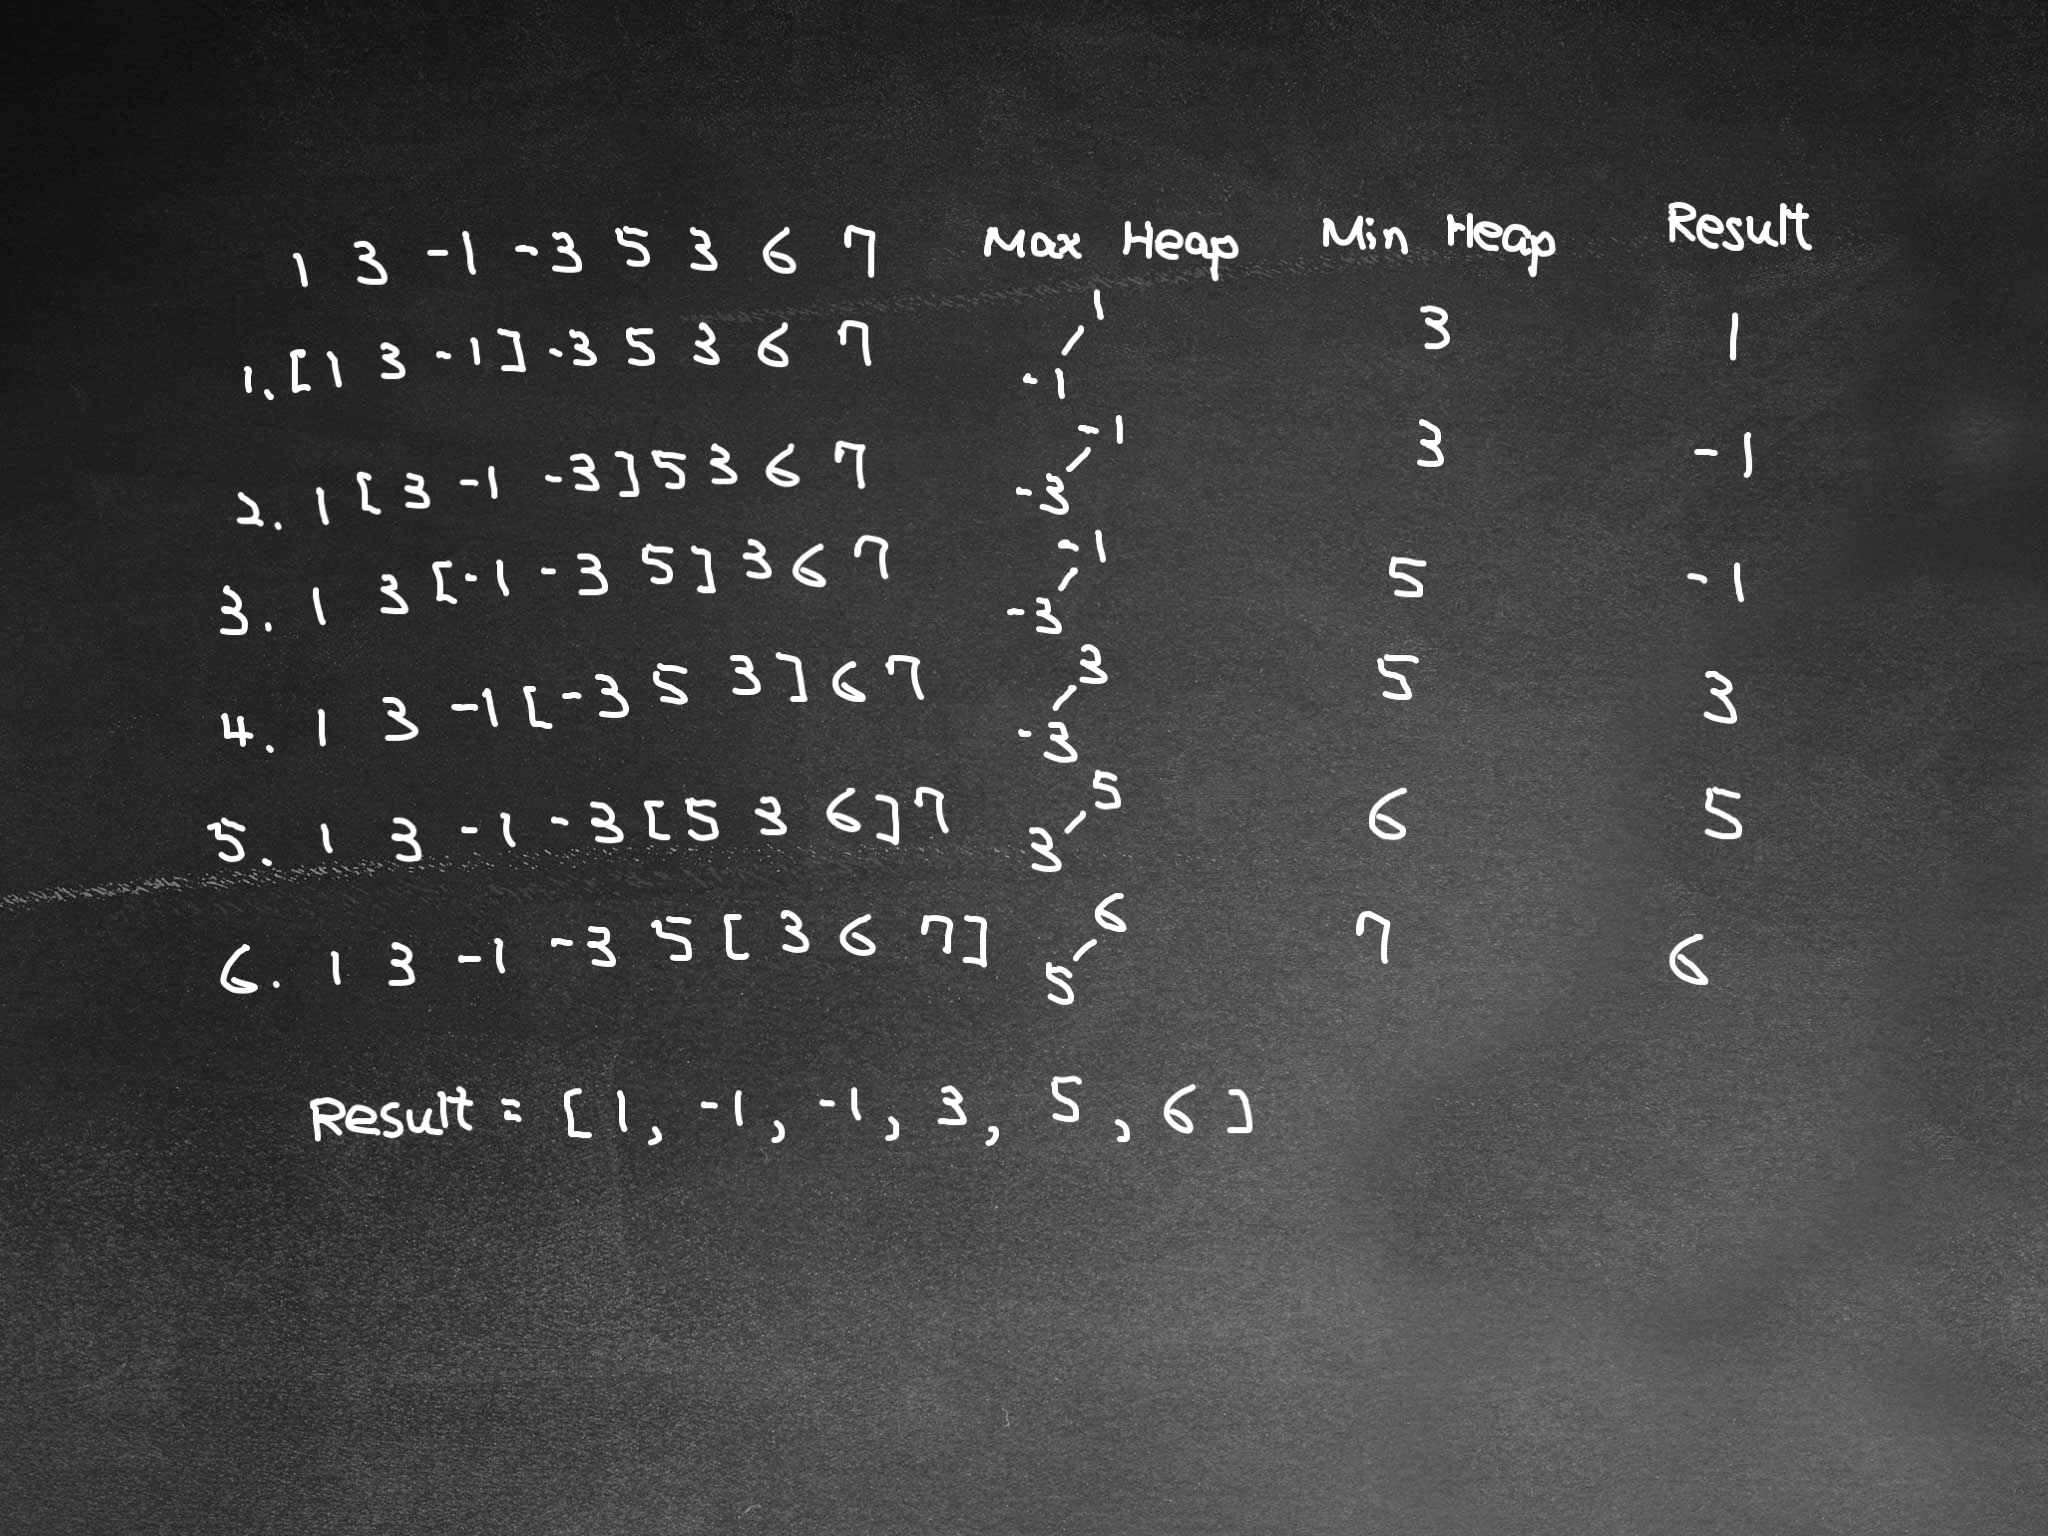 1 3 -1 -3 5 3 6 7 Max Heap Min Heap Result
1. [1 3 -1] -3 5 3 6 7 1 3 1
-1
2. 1 [3 -1 -3] 5 3 6 7 -1 3 -1
-3
3. 1 3 [-1 -3 5] 3 6 7 -1 5 -1
-3
4. 1 3 -1 [-3 5 3] 6 7 3 5 3
-3
5. 1 3 -1 -3 [5 3 6] 7 5 6 5
3
6. 1 3 -1 -3 5 [3 6 7] 6 7 6
5
Result = [1, -1, -1, 3, 5, 6]